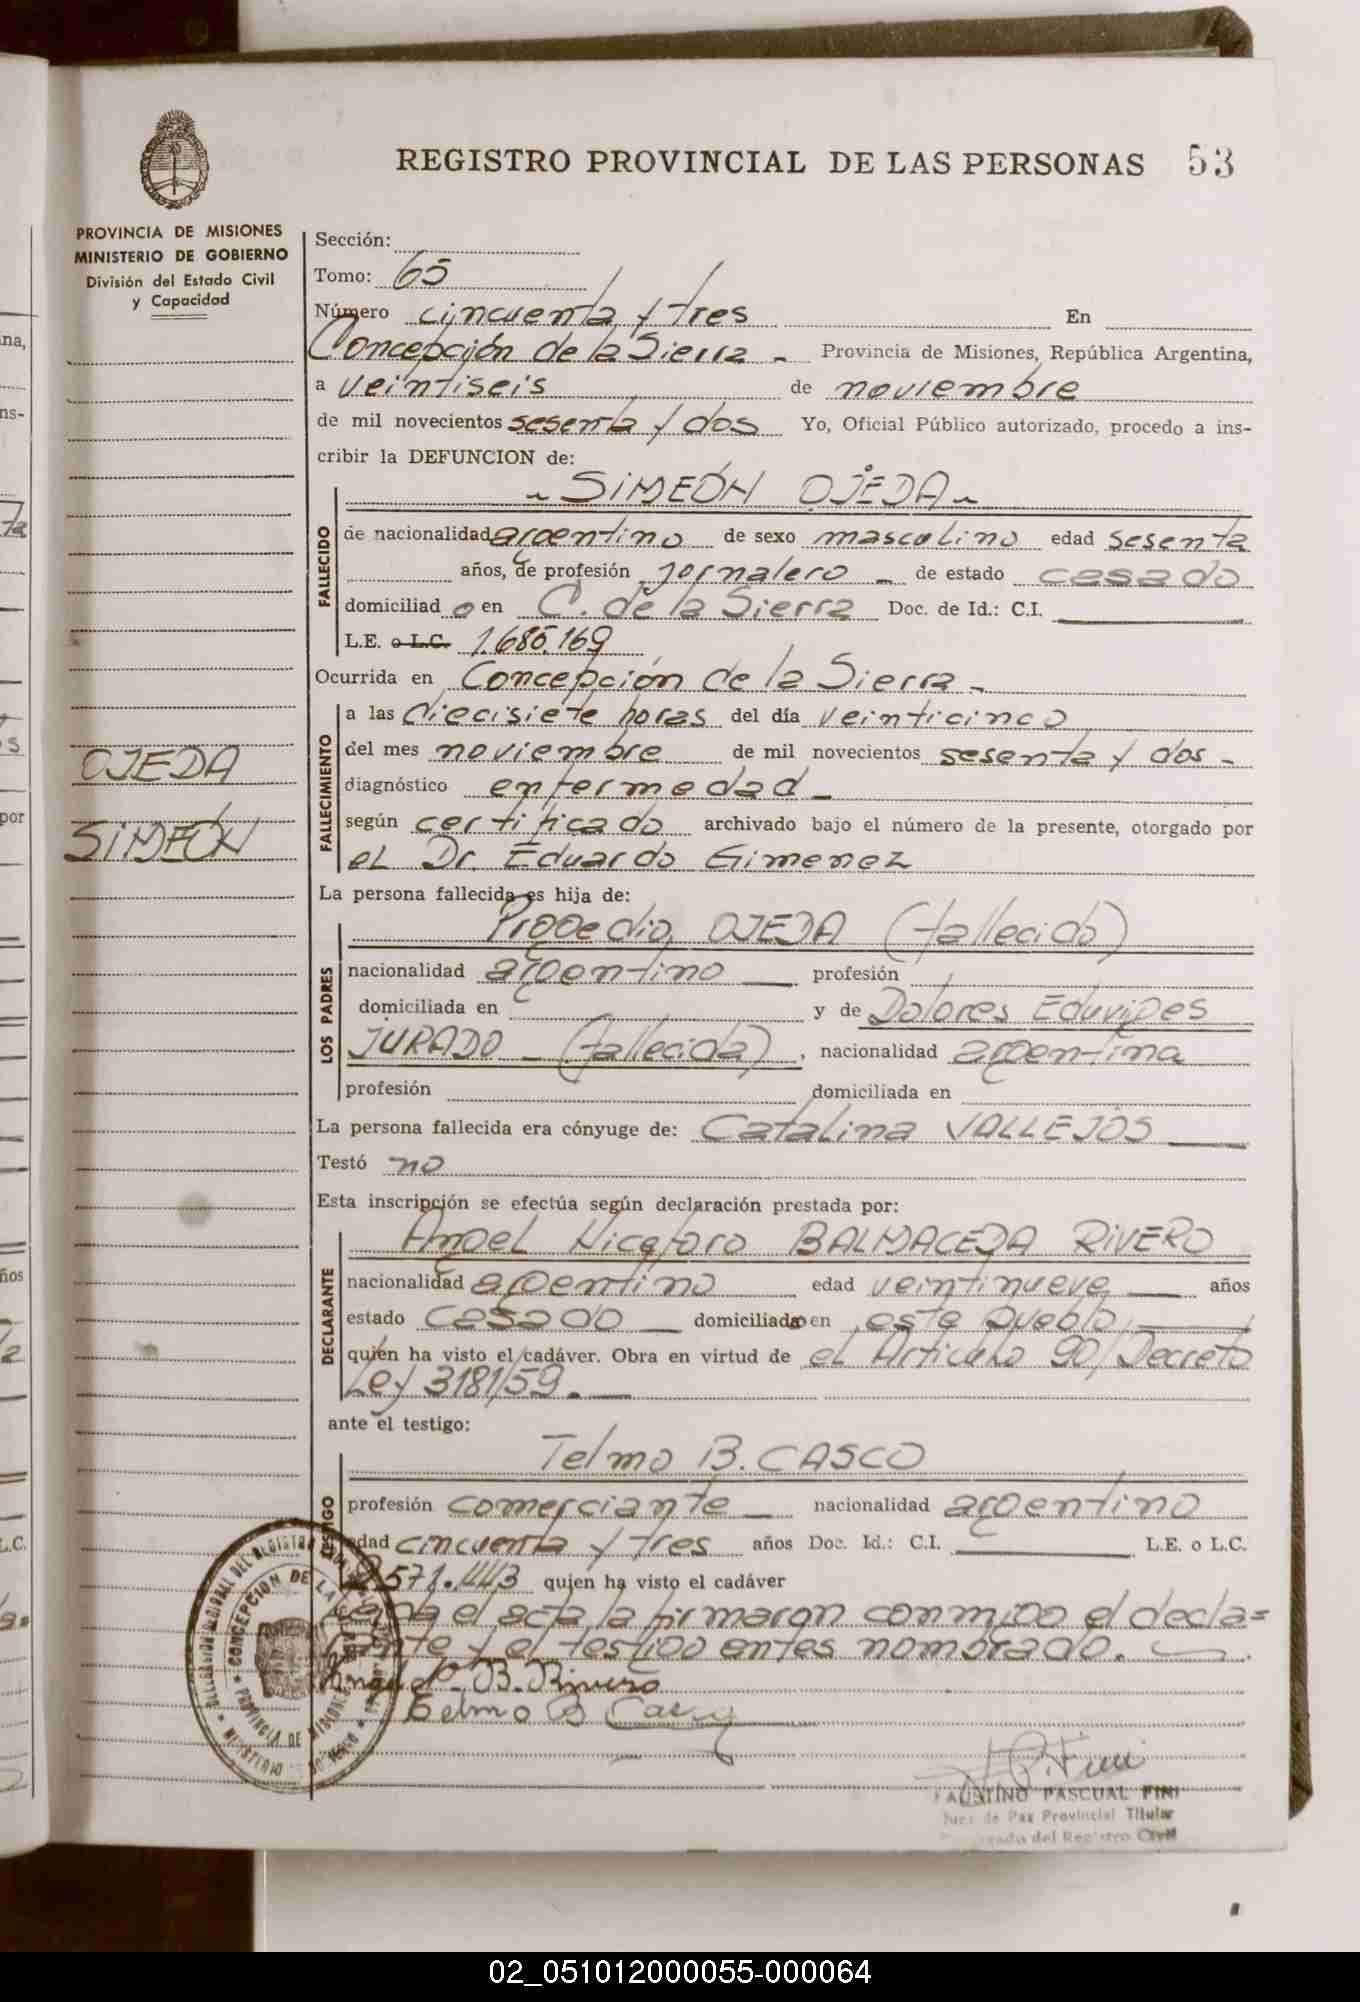 REGISTRO PROVINCIAL DE LAS PERSONAS 53
PROVINCIA DE MISIONES
MINISTERIO DE GOBIERNO
División del Estado Civil
y Capacidad
OJEDA
SIMEÓN
Sección:
Tomo: 65
Número cincuenta y tres En
Concepción de la Sierra - Provincia de Misiones, República Argentina,
a veintiseis de noviembre
de mil novecientos sesenta y dos Yo, Oficial Público autorizado, procedo a ins-
cribir la DEFUNCION de:
SIMEÓN OJEDA
FALLECIDO
de nacionalidad argentino de sexo masculino edad sesenta
años, de profesión jornalero - de estado casado
domiciliad o en C. de la Sierra Doc. de Id.: C.I.
L.E. o L.C. 1.685.169
Ocurrida en Concepción de la Sierra -
FALLECIMIENTO
a las diecisiete horas del día veinticinco
del mes noviembre de mil novecientos sesenta y dos -
diagnóstico enfermedad -
según certificado archivado bajo el número de la presente, otorgado por
el Dr. Eduardo Gimenez
La persona fallecida es hija de:
LOS PADRES
OJEDA (fallecido)
nacionalidad argentino profesión
domiciliada en y de Dolores Eduviges
JURADO - (fallecida), nacionalidad argentina
profesión domiciliada en
La persona fallecida era cónyuge de: Catalina VALLEJOS
Testó no
Esta inscripción se efectúa según declaración prestada por:
DECLARANTE
Angel Niceforo BALMACEDA RIVERO
nacionalidad argentino edad veintinueve años
estado casado domiciliado en este pueblo
quien ha visto el cadáver. Obra en virtud de el Articulo 90/Decreto
Ley 3181/59.
ante el testigo:
TESTIGO
Telmo B. CASCO
profesión comerciante nacionalidad argentino
edad cincuenta y tres años Doc. Id.: C.I. L.E. o L.C.
2.571.443 quien ha visto el cadáver
el acta, la firmaron conmigo el decla=
rante y el testigo antes nombrado.
B. Rivero
Telmo B Casco
FAUSTINO PASCUAL FINI
Juez de Paz Provincial Titular
Encargado del Registro Civil
CONCEPCION DE LA
PROVINCIA DE MISIONES
02_051012000055-000064